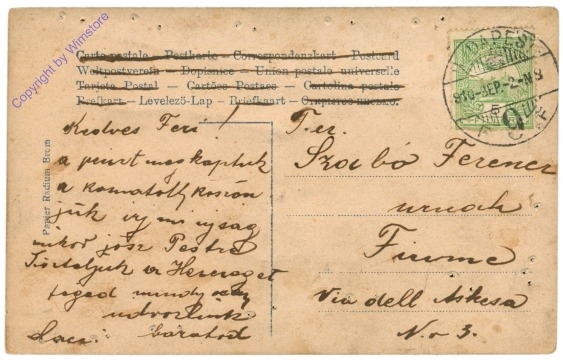 Copyright by Wimstore
Carte postale - Postkarte - Correspondenzkart - Postcard
Weltpostverein - Dopisnice - Union postale universelle
Tarjeta Postal - Cartões Postaes - Cartolina postale
Brefkart - Levelező-Lap - Briefkaart -
Papier Radium Brom
BUDAPEST
910 SEP.-2.-N9
Kedves Feri
a pénzt megkaptuk
a
juk irj mi ujsag
mikor jösz Pestre
Tiszteljük a Herczeget
téged mindnyájan
üdvözlünk
barátod
T. cz.
Szabó Ferencz
urnak
Fiume
Via dell
No 3.